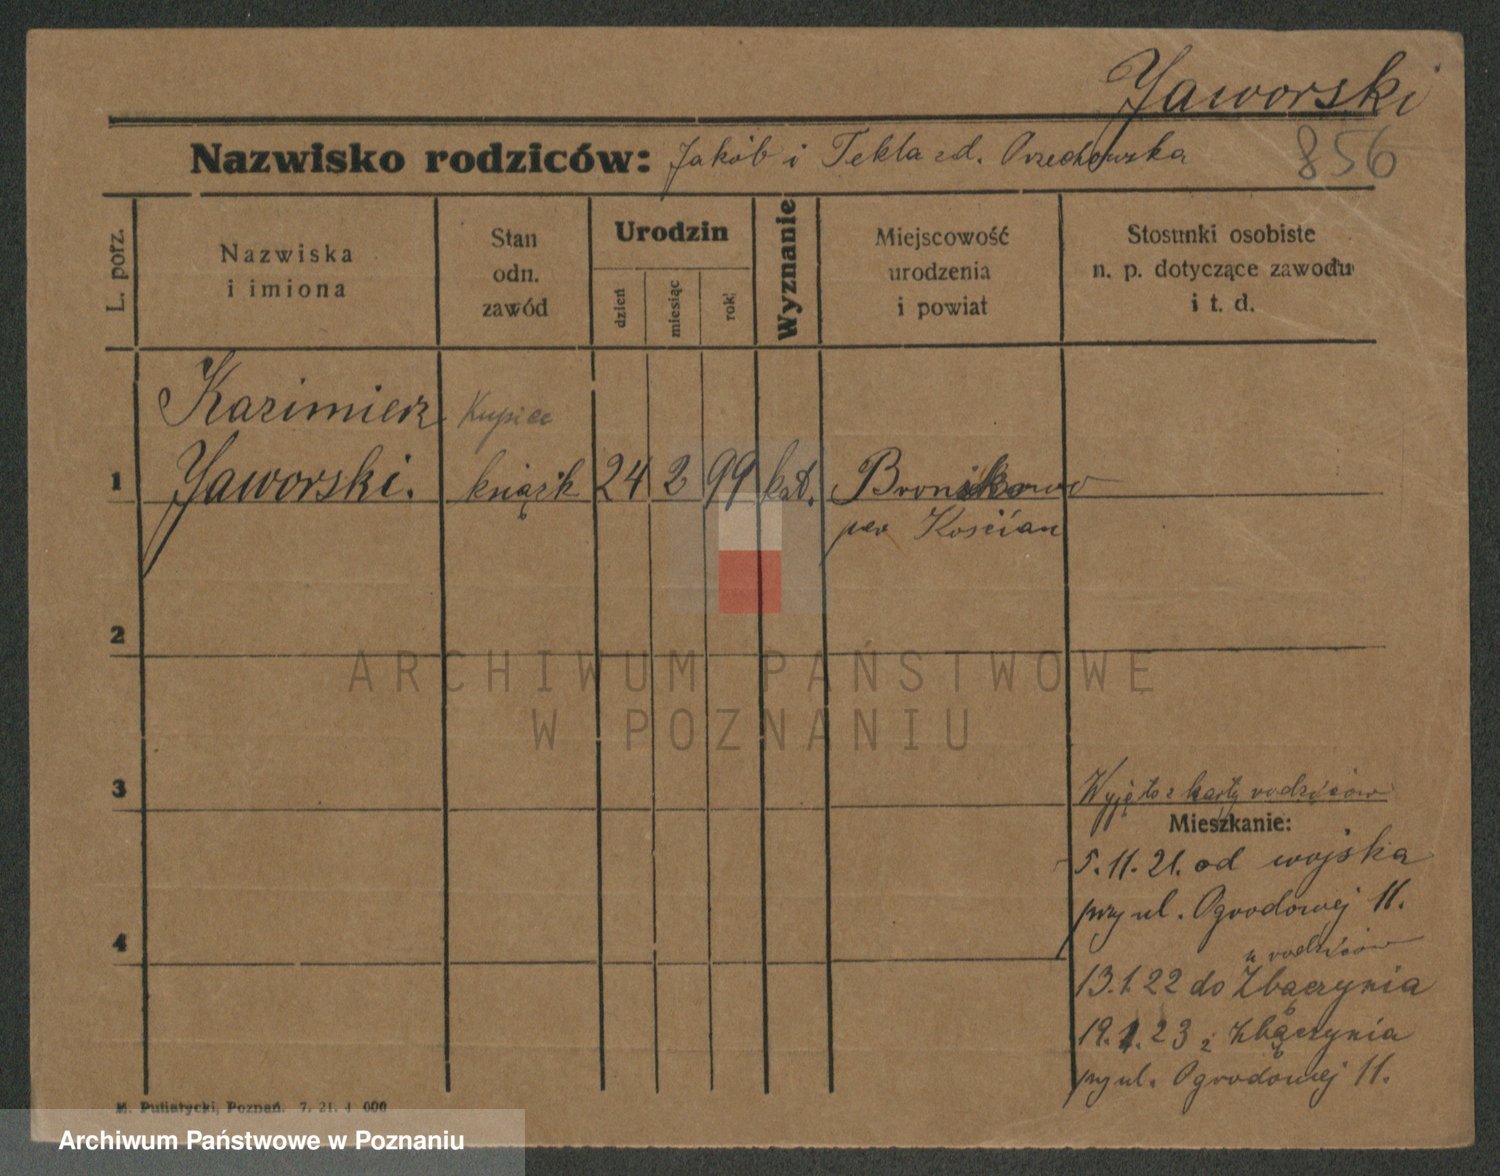 Jaworski
856
Nazwisko rodziców: Jakób i Tekla zd. Orzechowska
L. porz.
Nazwiska
i imiona
Stan
odn.
zawód
Urodzin
dzień
miesiąc
rok
Wyznanie
Miejscowość
urodzenia
i powiat
Stosunki osobiste
n. p. dotyczące zawodu
i t. d.
Kazimierz Kupiec
1 Jaworski. książk 24 2 99 kat. Bronikowo
pow Kościan
2
ARCHIWUM PAŃSTWOWE
W POZNANIU
3
Wyjęto z karty rodziców
Mieszkanie:
5.11.21. od wojska
przy ul. Ogrodowej 11.
4
u rodziców
13.1.22 do Zbąszynia
19.1.23 z Zbąszynia
przy ul. Ogrodowej 11.
M. Putiatycki, Poznań. 7. 21. 4 000
Archiwum Państwowe w Poznaniu